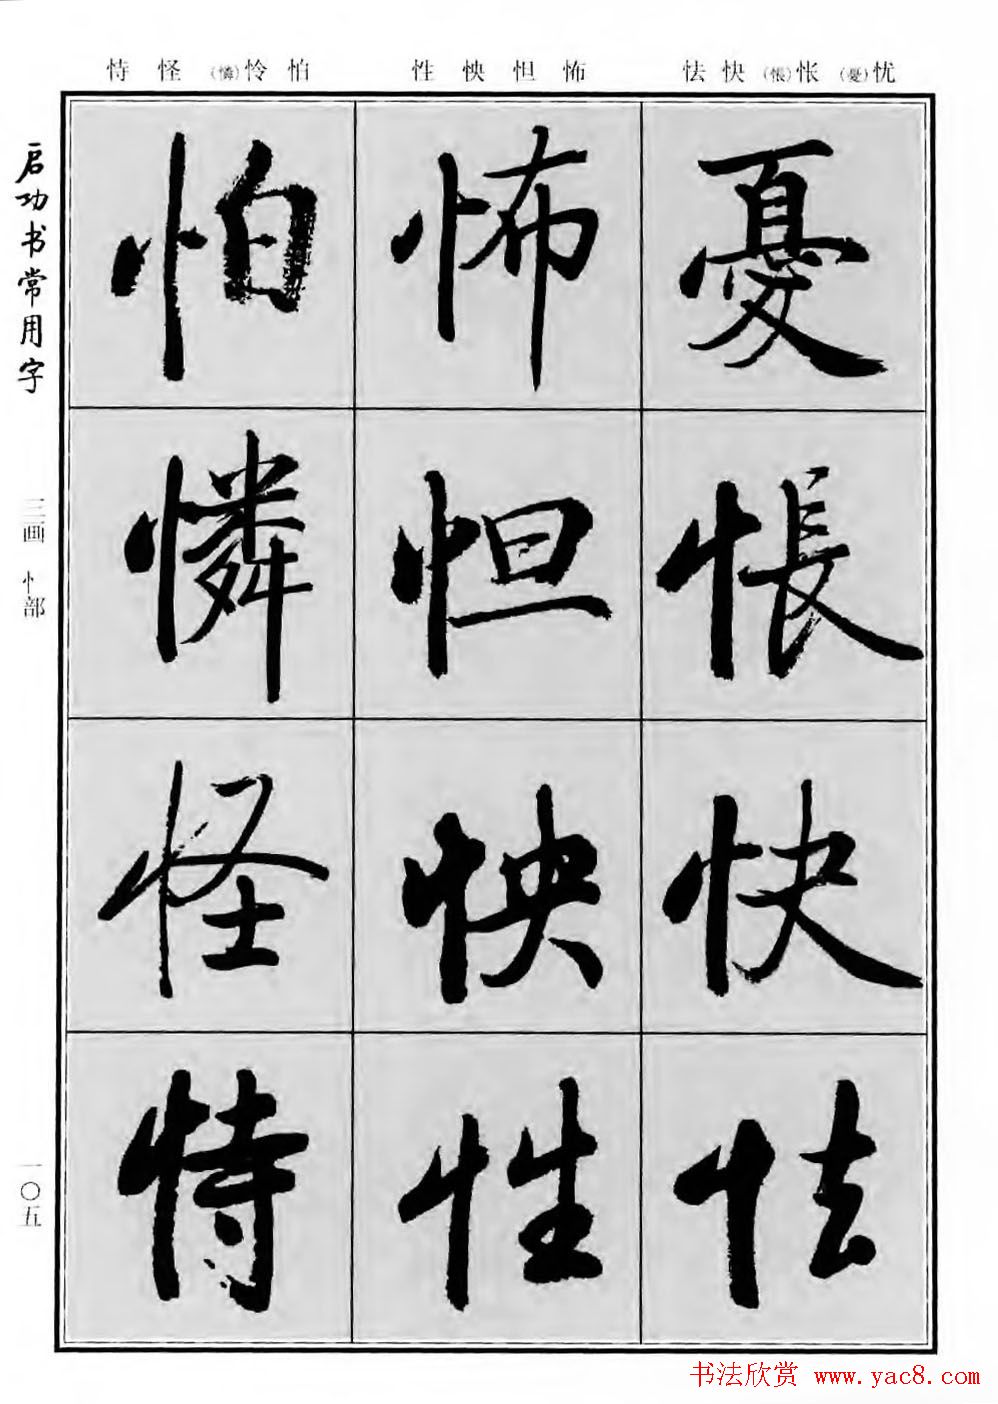 怯快(悵)怅(憂)忧
性怏怛怖
恃怪(憐)怜怕
憂
悵
快
怯
怖
怛
怏
性
怕
憐
怪
恃
启功书常用字
三画 忄部
一〇五
书法欣赏 www.yac8.com